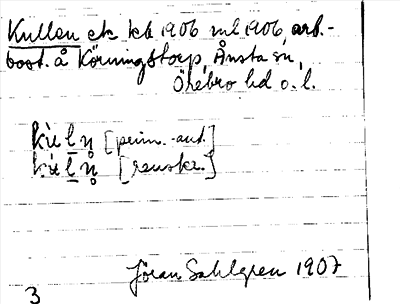 Kullen ek kb 1906 ml 1906, arb.-
bost. å Körningstorp, Ånsta sn,
Örebro hd o. l.
[prim.-ant.]
[renskr.]
Jöran Sahlgren 1907
3